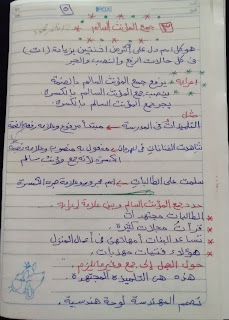 ٥
٣ جمع المؤنث السالم
هو كل اسم دل على أكثر من اثنتين بزيادة (ات)
فى كل حالات الرفع والنصب والجر
إعرابه يرفع جمع المؤنث السالم بالضمة
ينصب جمع المؤنث السالم بالكسرة
يجر جمع المؤنث السالم بالكسرة
مثل
التلميذات فى المدرسة ← مبتدأ مرفوع وعلامة رفعه الضمة
شاهدت الفنانات فى المهرجان ← مفعول به منصوب وعلامة نصبه
الكسرة لأنه جمع مؤنث سالم
سلمت على الطالبات ← اسم مجرور وعلامة جره الكسرة
حدد جمع المؤنث السالم وبين علامة إعرابه
الطالبات مجتهدات
قرأت مجلات كثيرة
تساعد البنات أمهاتهن فى أعمال المنزل
هؤلاء فتيات مهذبات
حول الجمل إلى جمع وغير ما يلزم
هذه هى التلميذة المجتهدة
تصمم المهندسة لوحة هندسية